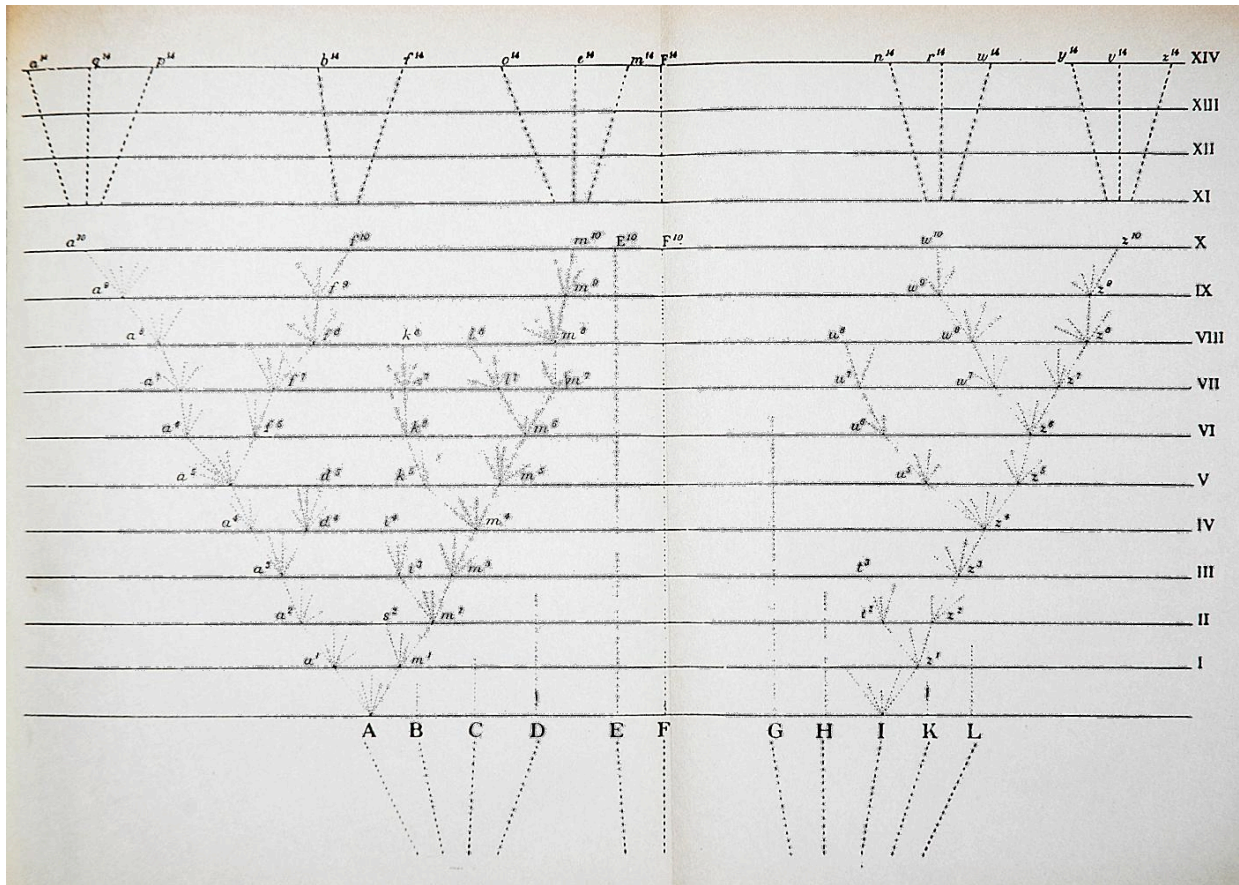 a¹⁴ q¹⁴ p¹⁴ b¹⁴ f¹⁴ o¹⁴ e¹⁴ m¹⁴ F¹⁴ n¹⁴ r¹⁴ w¹⁴ y¹⁴ v¹⁴ z¹⁴ XIV
XIII
XII
XI
a¹⁰ f¹⁰ m¹⁰ E¹⁰ F¹⁰ w¹⁰ z¹⁰ X
a⁹ f⁹ m⁹ w⁹ z⁹ IX
a⁸ f⁸ k⁸ l⁸ m⁸ u⁸ w⁸ z⁸ VIII
a⁷ f⁷ l⁷ m⁷ u⁷ w⁷ z⁷ VII
a⁶ k⁶ m⁶ u⁶ z⁶ VI
a⁵ d⁵ k⁵ m⁵ u⁵ z⁵ V
a⁴ d⁴ i⁴ m⁴ z⁴ IV
a³ i³ m³ t³ z³ III
a² s² m² t² z² II
a¹ m¹ z¹ I
A B C D E F G H I K L